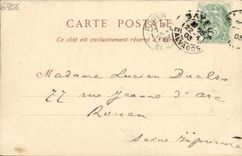 6956
CARTE POSTALE
Ce côté est exclusivement réservé à l'adresse
CALVADOS
03
Madame Lucien Duclos
77 rue Jeanne d'Arc
Rouen
Seine Inférieure